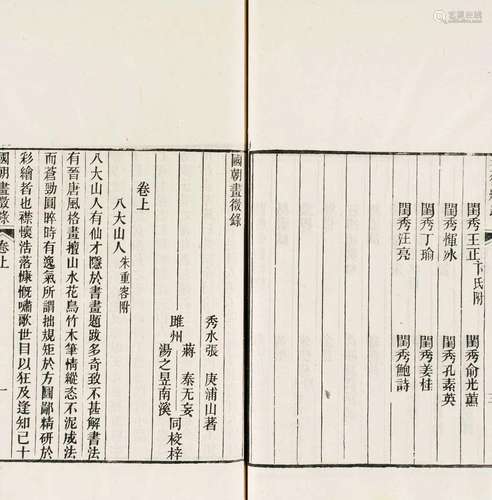 閨秀王正 卞氏附 閨秀俞光蕙
閨秀惲冰 閨秀孔素英
閨秀丁瑜 閨秀姜桂
閨秀汪亮 閨秀鮑詩
國朝畫徵錄
秀水張 庚浦山著
睢州 蔣 泰无妄 同校梓
湯之昱南溪
卷上
八大山人 朱重容附
八大山人有仙才隱於書畫題跋多奇致不甚解書法
有晉唐風格畫擅山水花鳥竹木筆情縱恣不泥成法
而蒼勁圓晬時有逸氣所謂拙規矩於方圓鄙精研於
彩繪者也襟懷浩落慷慨嘯歌世目以狂及逢知己十
國朝畫徵錄 卷上 一